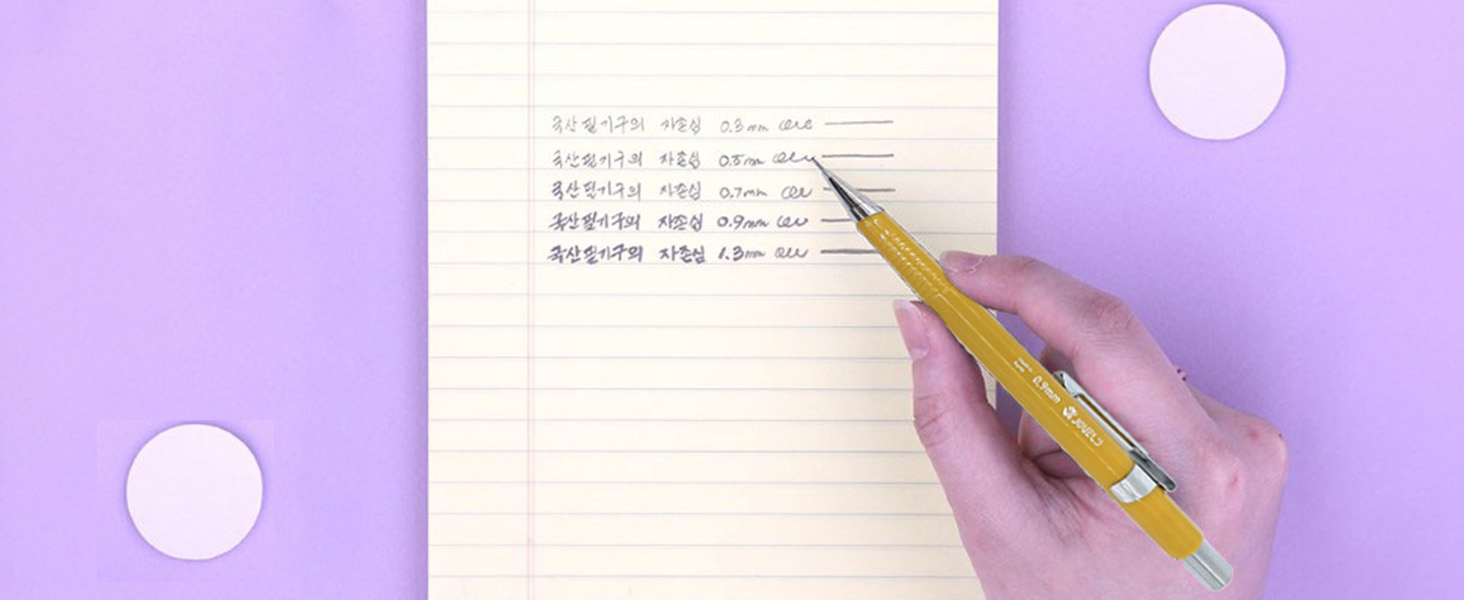 국산필기구의 자존심 0.3mm
국산필기구의 자존심 0.5mm
국산필기구의 자존심 0.7mm
국산필기구의 자존심 0.9mm
국산필기구의 자존심 1.3mm
0.9mm JOVELY